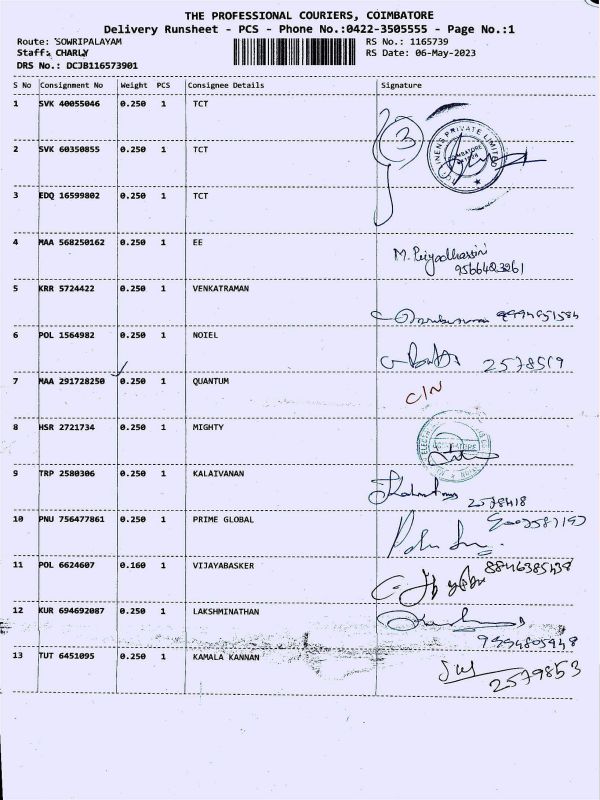 THE PROFESSIONAL COURIERS, COIMBATORE
Delivery Runsheet - PCS - Phone No.:0422-3505555 - Page No.:1
Route: SOWRIPALAYAM RS No.: 1165739
Staff: CHARLY RS Date: 06-May-2023
DRS No.: DCJB116573901
S No Consignment No Weight PCS Consignee Details Signature
1 SVK 40055046 0.250 1 TCT
3
2 SVK 60350855 0.250 1 TCT
3 EDQ 16599802 0.250 1 TCT
4 MAA 568250162 0.250 1 EE
M. Priyadharsini
5 KRR 5724422 0.250 1 VENKATRAMAN
6 POL 1564982 0.250 1 NOIEL
7 MAA 291728250 0.250 1 QUANTUM C/N
8 HSR 2721734 0.250 1 MIGHTY
9 TRP 2580306 0.250 1 KALAIVANAN
2578418
10 PNU 756477861 0.250 1 PRIME GLOBAL
11 POL 6624607 0.160 1 VIJAYABASKER
12 KUR 694692087 0.250 1 LAKSHMINATHAN
13 TUT 6451095 0.250 1 KAMALA KANNAN
2579853